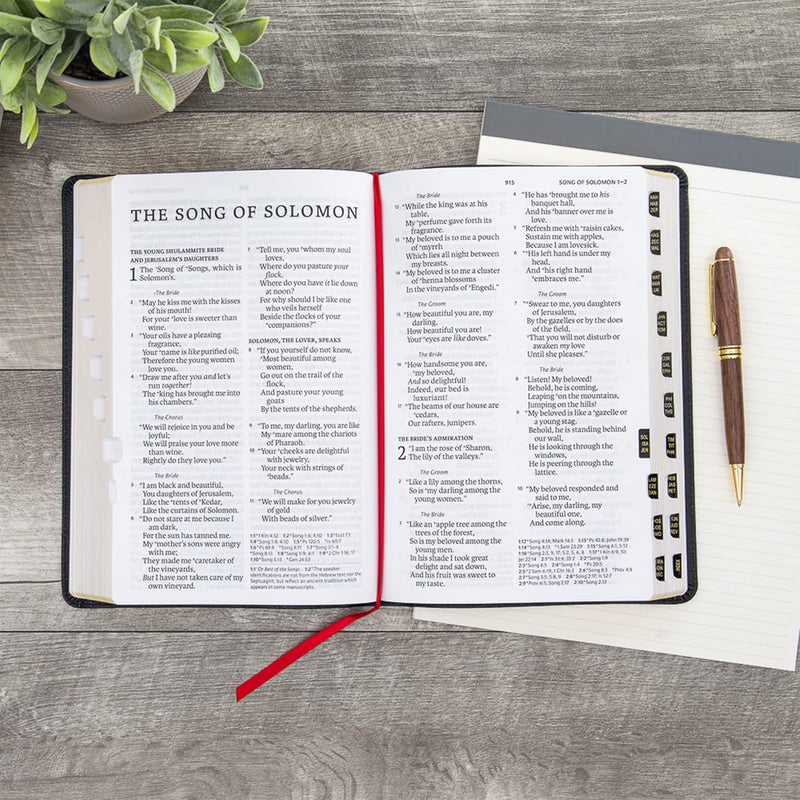 THE SONG OF SOLOMON
THE YOUNG SHULAMMITE BRIDE
AND JERUSALEM'S DAUGHTERS
1 The Song of Songs, which is
Solomon's.
The Bride
2 "May he kiss me with the kisses
of his mouth!
For your love is sweeter than
wine.
3 "Your oils have a pleasing
fragrance,
Your name is like purified oil;
Therefore the young women
love you.
4 "Draw me after you and let's
run together!
The king has brought me into
his chambers."
The Chorus
"We will rejoice in you and be
joyful;
We will praise your love more
than wine.
Rightly do they love you."
The Bride
5 "I am black and beautiful,
You daughters of Jerusalem,
Like the tents of Kedar,
Like the curtains of Solomon.
6 "Do not stare at me because I
am dark,
For the sun has tanned me.
My mother's sons were angry
with me;
They made me caretaker of
the vineyards,
But I have not taken care of my
own vineyard.
7 "Tell me, you whom my soul
loves,
Where do you pasture your
flock,
Where do you have it lie down
at noon?
For why should I be like one
who veils herself
Beside the flocks of your
companions?"
SOLOMON, THE LOVER, SPEAKS
8 "If you yourself do not know,
Most beautiful among
women,
Go out on the trail of the
flock,
And pasture your young
goats
By the tents of the shepherds.
9 "To me, my darling, you are like
My mare among the chariots
of Pharaoh.
10 "Your cheeks are delightful
with jewelry,
Your neck with strings of
beads."
The Chorus
11 "We will make for you jewelry
of gold
With beads of silver."
915 SONG OF SOLOMON 1–2
The Bride
12 "While the king was at his
table,
My perfume gave forth its
fragrance.
13 "My beloved is to me a pouch
of myrrh
Which lies all night between
my breasts.
14 "My beloved is to me a cluster
of henna blossoms
In the vineyards of Engedi."
The Groom
15 "How beautiful you are, my
darling,
How beautiful you are!
Your eyes are like doves."
The Bride
16 "How handsome you are,
my beloved,
And so delightful!
Indeed, our bed is
luxuriant!
17 "The beams of our house are
cedars,
Our rafters, junipers.
THE BRIDE'S ADMIRATION
2 "I am the rose of Sharon,
The lily of the valleys."
The Groom
2 "Like a lily among the thorns,
So is my darling among the
young women."
The Bride
3 "Like an apple tree among the
trees of the forest,
So is my beloved among the
young men.
In his shade I took great
delight and sat down,
And his fruit was sweet to
my taste.
4 "He has brought me to his
banquet hall,
And his banner over me is
love.
5 "Refresh me with raisin cakes,
Sustain me with apples,
Because I am lovesick.
6 "His left hand is under my
head,
And his right hand
embraces me."
The Groom
7 "Swear to me, you daughters
of Jerusalem,
By the gazelles or by the does
of the field,
That you will not disturb or
awaken my love
Until she pleases."
The Bride
8 "Listen! My beloved!
Behold, he is coming,
Leaping on the mountains,
Jumping on the hills!
9 "My beloved is like a gazelle or
a young stag.
Behold, he is standing behind
our wall,
He is looking through the
windows,
He is peering through the
lattice.
10 "My beloved responded and
said to me,
'Arise, my darling, my
beautiful one,
And come along.
INDEX